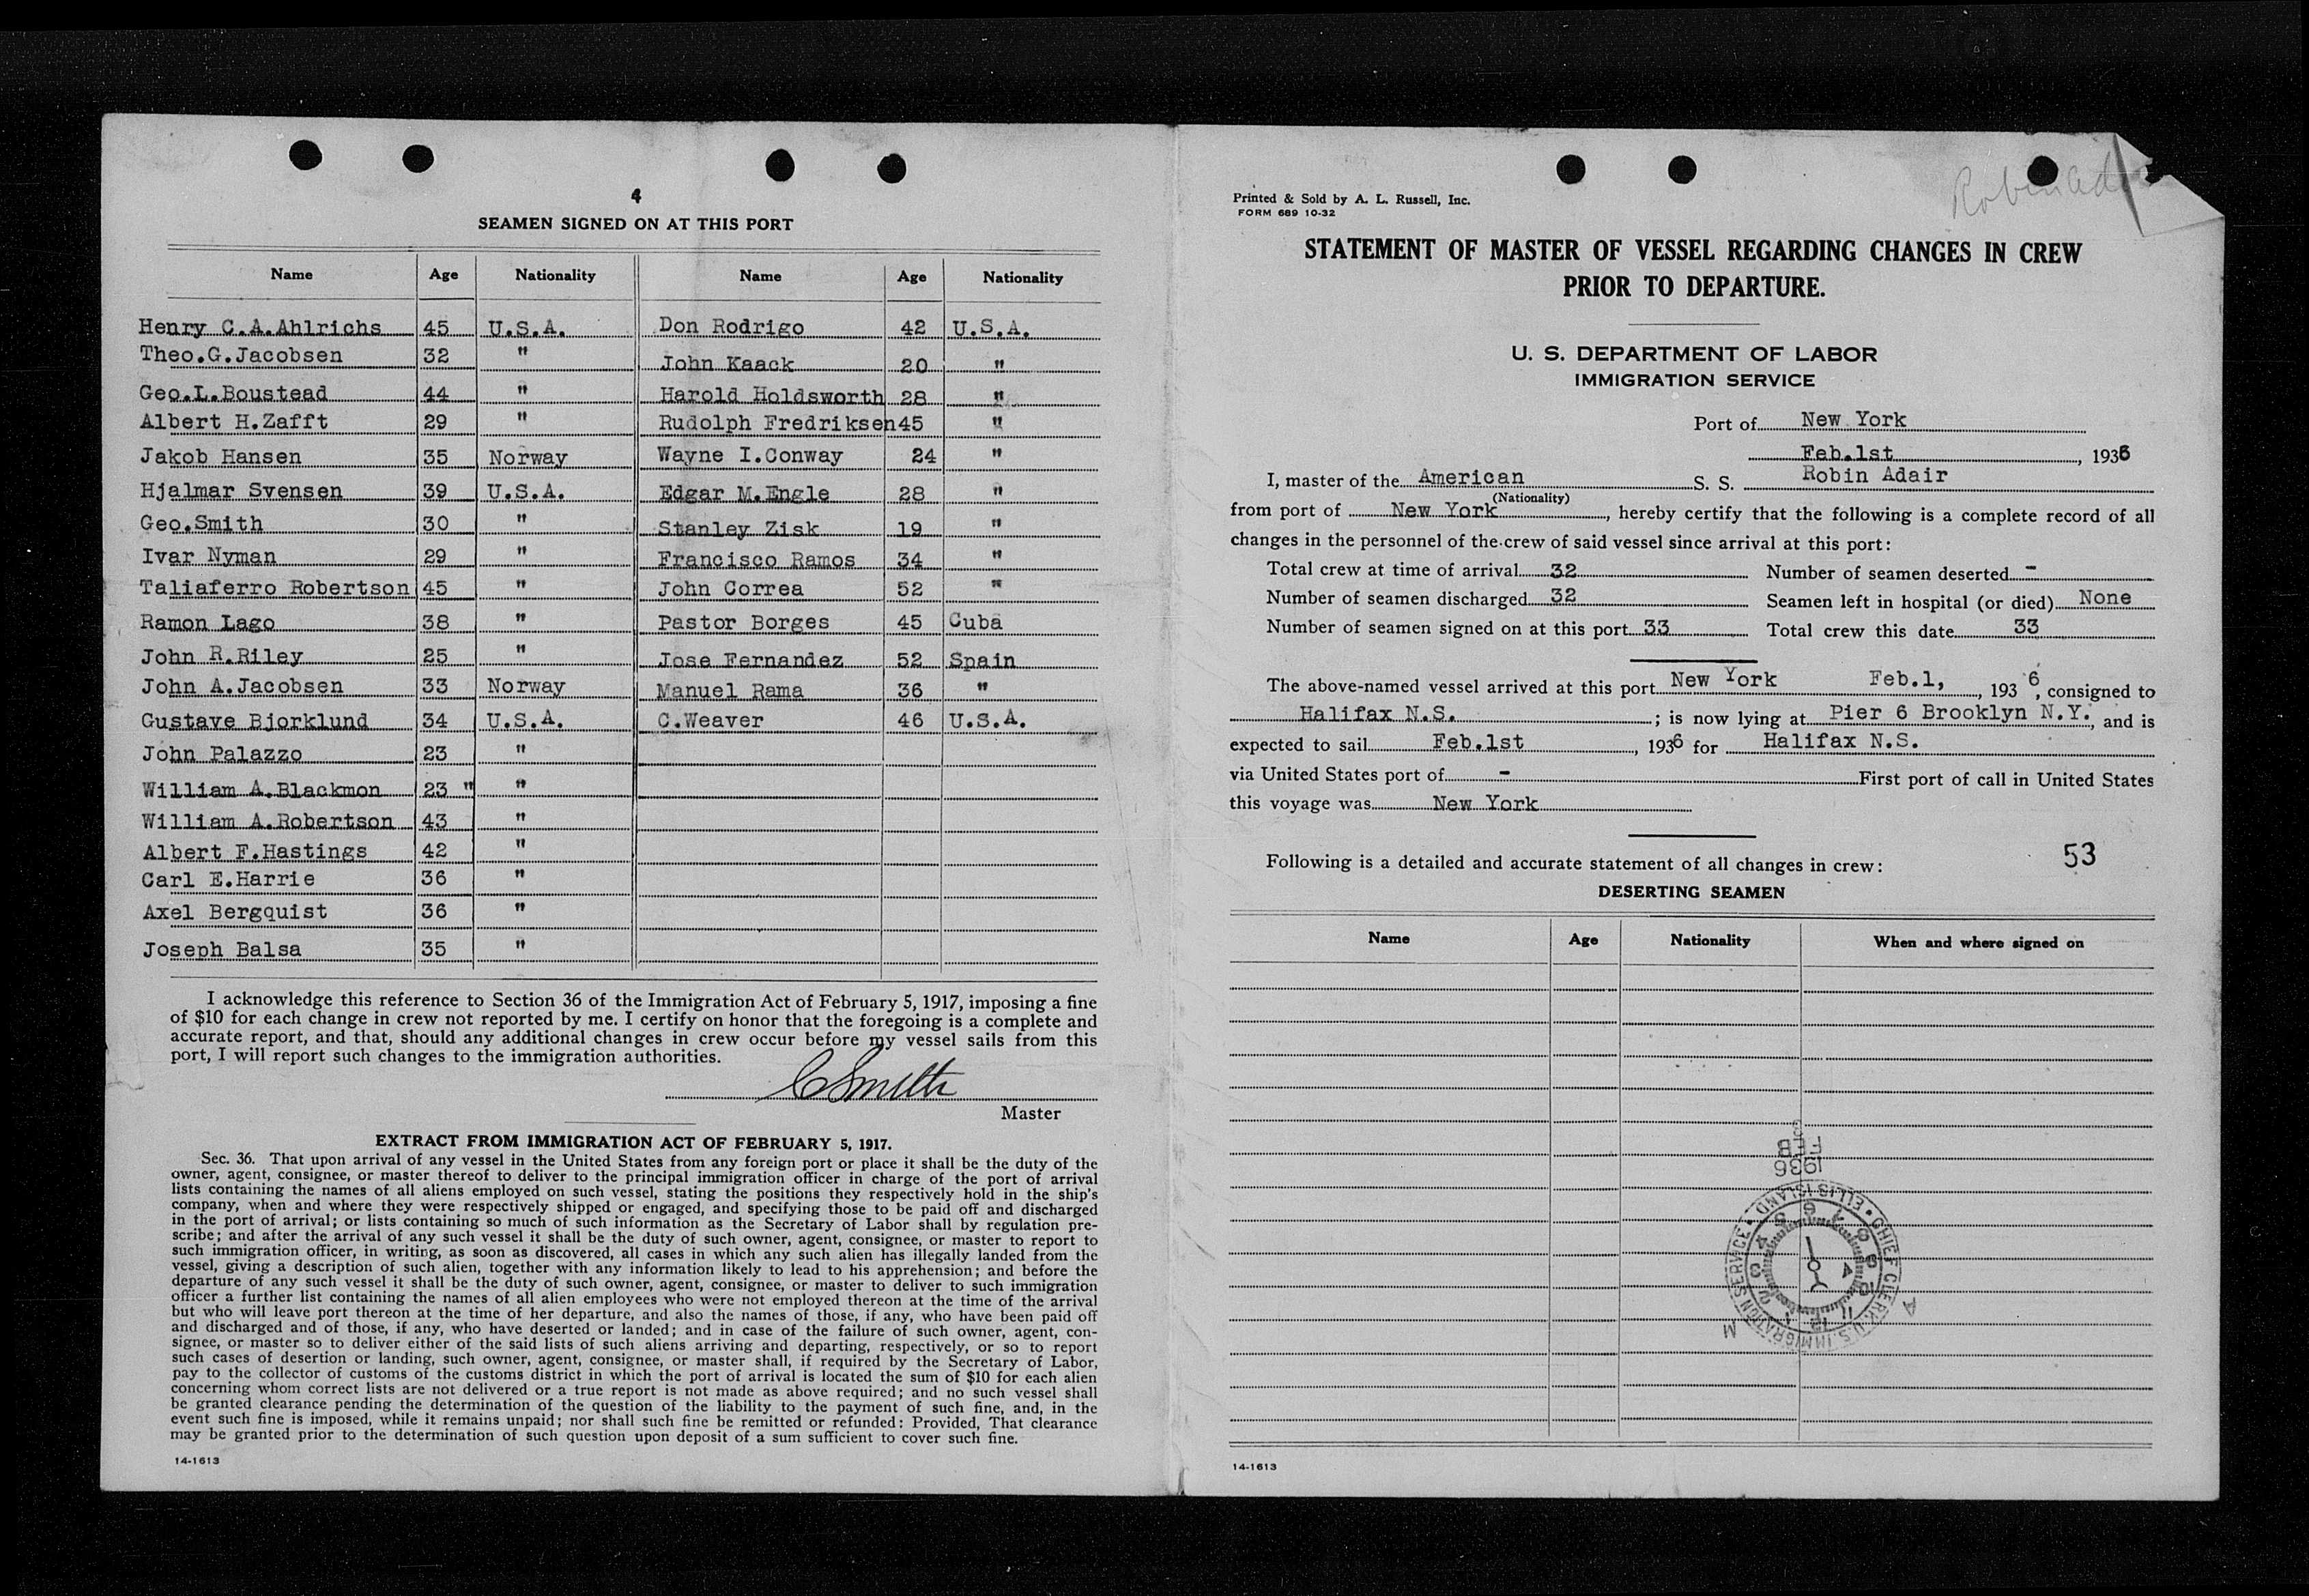 4
SEAMEN SIGNED ON AT THIS PORT
Name Age Nationality Name Age Nationality
Henry C.A.Ahlrichs 45 U.S.A. Don Rodrigo 42 U.S.A.
Theo.G.Jacobsen 32 " John Kaack 20 "
Geo.L.Boustead 44 " Harold Holdsworth 28 "
Albert H.Zafft 29 " Rudolph Fredriksen 45 "
Jakob Hansen 35 Norway Wayne I.Conway 24 "
Hjalmar Svensen 39 U.S.A. Edgar M.Engle 28 "
Geo.Smith 30 " Stanley Zisk 19 "
Ivar Nyman 29 " Francisco Ramos 34 "
Taliaferro Robertson 45 " John Correa 52 "
Ramon Lago 38 " Pastor Borges 45 Cuba
John R.Riley 25 " Jose Fernandez 52 Spain
John A.Jacobsen 33 Norway Manuel Rama 36 "
Gustave Bjorklund 34 U.S.A. C.Weaver 46 U.S.A.
John Palazzo 23 "
William A.Blackmon 23 " "
William A.Robertson 43 "
Albert F.Hastings 42 "
Carl E.Harrie 36 "
Axel Bergquist 36 "
Joseph Balsa 35 "
I acknowledge this reference to Section 36 of the Immigration Act of February 5, 1917, imposing a fine
of $10 for each change in crew not reported by me. I certify on honor that the foregoing is a complete and
accurate report, and that, should any additional changes in crew occur before my vessel sails from this
port, I will report such changes to the immigration authorities.
C Smith
Master
EXTRACT FROM IMMIGRATION ACT OF FEBRUARY 5, 1917.
Sec. 36. That upon arrival of any vessel in the United States from any foreign port or place it shall be the duty of the
owner, agent, consignee, or master thereof to deliver to the principal immigration officer in charge of the port of arrival
lists containing the names of all aliens employed on such vessel, stating the positions they respectively hold in the ship's
company, when and where they were respectively shipped or engaged, and specifying those to be paid off and discharged
in the port of arrival; or lists containing so much of such information as the Secretary of Labor shall by regulation pre-
scribe; and after the arrival of any such vessel it shall be the duty of such owner, agent, consignee, or master to report to
such immigration officer, in writing, as soon as discovered, all cases in which any such alien has illegally landed from the
vessel, giving a description of such alien, together with any information likely to lead to his apprehension; and before the
departure of any such vessel it shall be the duty of such owner, agent, consignee, or master to deliver to such immigration
officer a further list containing the names of all alien employees who were not employed thereon at the time of the arrival
but who will leave port thereon at the time of her departure, and also the names of those, if any, who have been paid off
and discharged and of those, if any, who have deserted or landed; and in case of the failure of such owner, agent, con-
signee, or master so to deliver either of the said lists of such aliens arriving and departing, respectively, or so to report
such cases of desertion or landing, such owner, agent, consignee, or master shall, if required by the Secretary of Labor,
pay to the collector of customs of the customs district in which the port of arrival is located the sum of $10 for each alien
concerning whom correct lists are not delivered or a true report is not made as above required; and no such vessel shall
be granted clearance pending the determination of the question of the liability to the payment of such fine, and, in the
event such fine is imposed, while it remains unpaid; nor shall such fine be remitted or refunded: Provided, That clearance
may be granted prior to the determination of such question upon deposit of a sum sufficient to cover such fine.
14-1613
Printed & Sold by A. L. Russell, Inc.
FORM 689 10-32
Robin
STATEMENT OF MASTER OF VESSEL REGARDING CHANGES IN CREW
PRIOR TO DEPARTURE.
U. S. DEPARTMENT OF LABOR
IMMIGRATION SERVICE
Port of New York
Feb.1st, 1936
I, master of the American S. S. Robin Adair
(Nationality)
from port of New York, hereby certify that the following is a complete record of all
changes in the personnel of the crew of said vessel since arrival at this port:
Total crew at time of arrival 32 Number of seamen deserted -
Number of seamen discharged 32 Seamen left in hospital (or died) None
Number of seamen signed on at this port 33 Total crew this date 33
The above-named vessel arrived at this port New York Feb.1, 1936, consigned to
Halifax N.S.; is now lying at Pier 6 Brooklyn N.Y., and is
expected to sail Feb.1st, 1936 for Halifax N.S.
via United States port of - First port of call in United States
this voyage was New York
53
Following is a detailed and accurate statement of all changes in crew:
DESERTING SEAMEN
Name Age Nationality When and where signed on
FEB
1936
CHIEF CLERK U.S. IMMIGRATION SERVICE • ELLIS ISLAND •
A M
14-1613